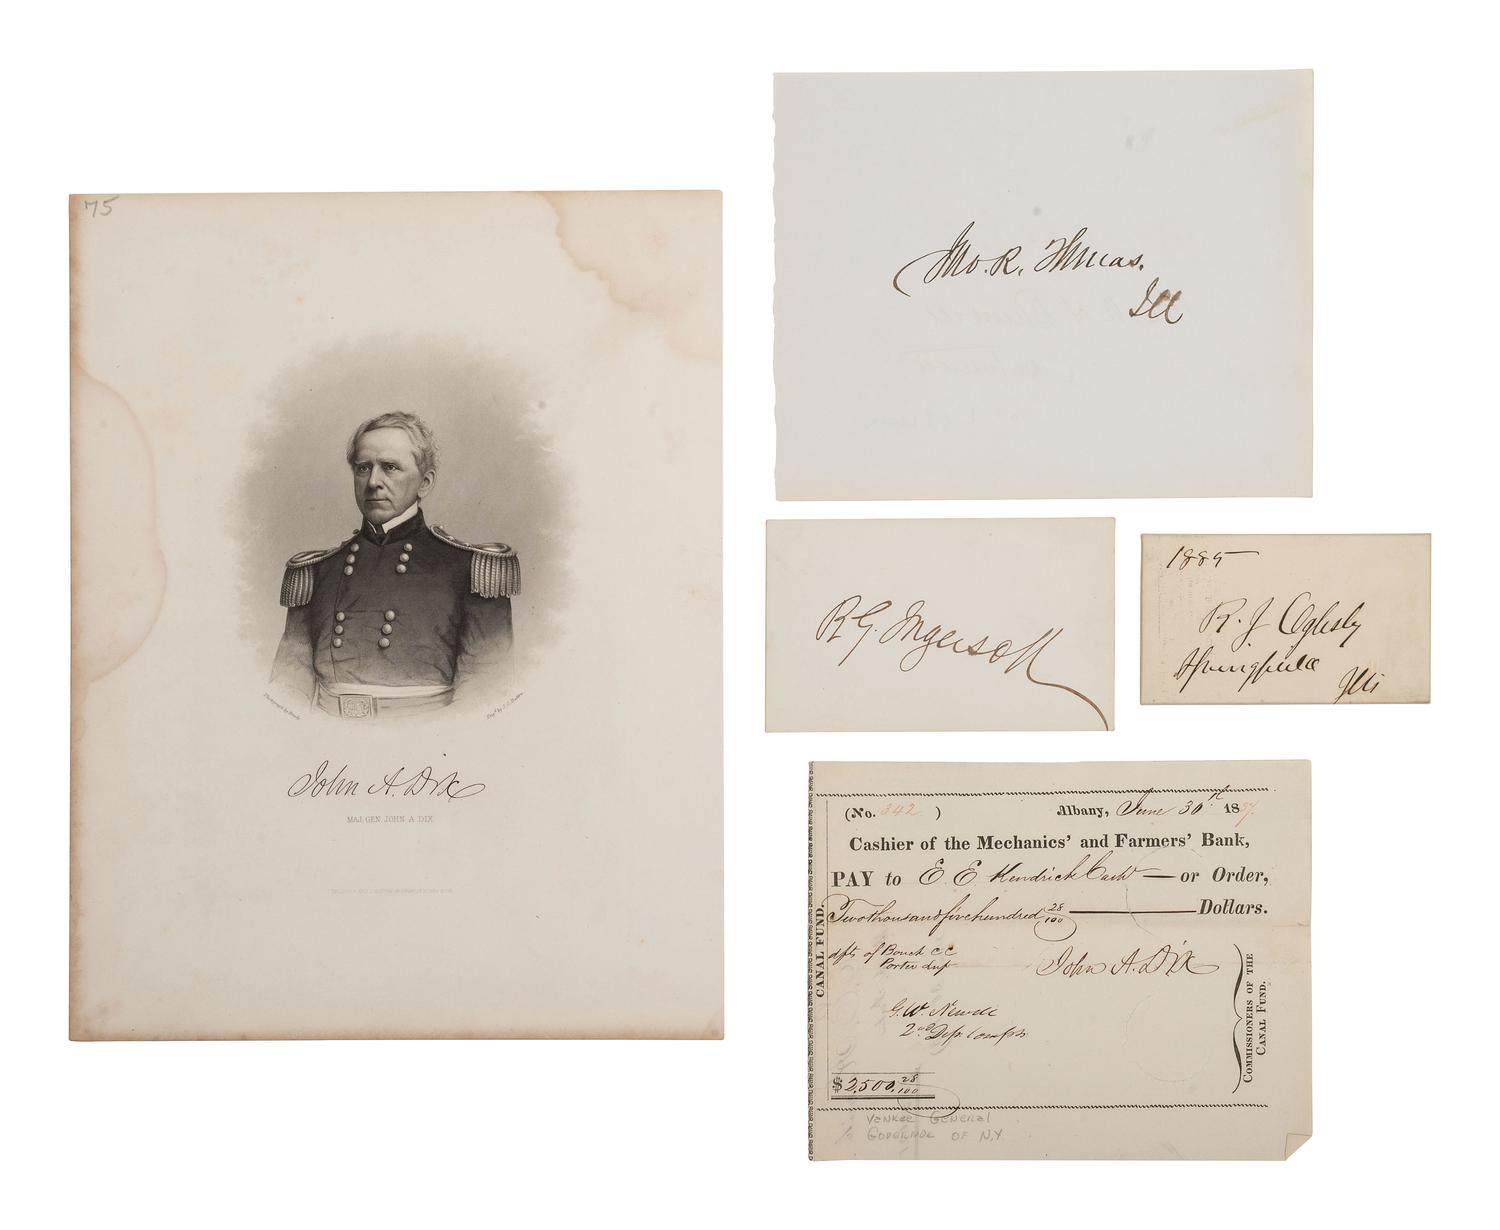 75
John A. Dix
MAJ. GEN. JOHN A. DIX
Jno. R. Thomas.
Ill
R G. Ingersoll
1885
R. J Oglesby
Springfield
Ills
(No. 342 )
Albany, June 30th 1837.
Cashier of the Mechanics' and Farmers' Bank,
PAY to E E Kendrick Cash — or Order,
Two thousand five hundred 28/100 Dollars.
dfts of Bouck CC
Porter
John A. Dix
G.W. Newell
2nd Dep. Compr.
$2,500, 28/100
CANAL FUND.
COMMISSIONERS OF THE
CANAL FUND.
YANKEE GENERAL
GOVERNOR OF N.Y.